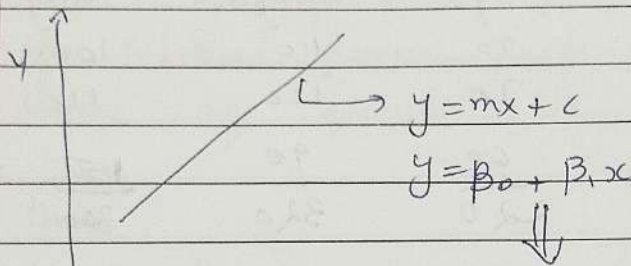 y
y = mx + c
y = β₀ + β₁x